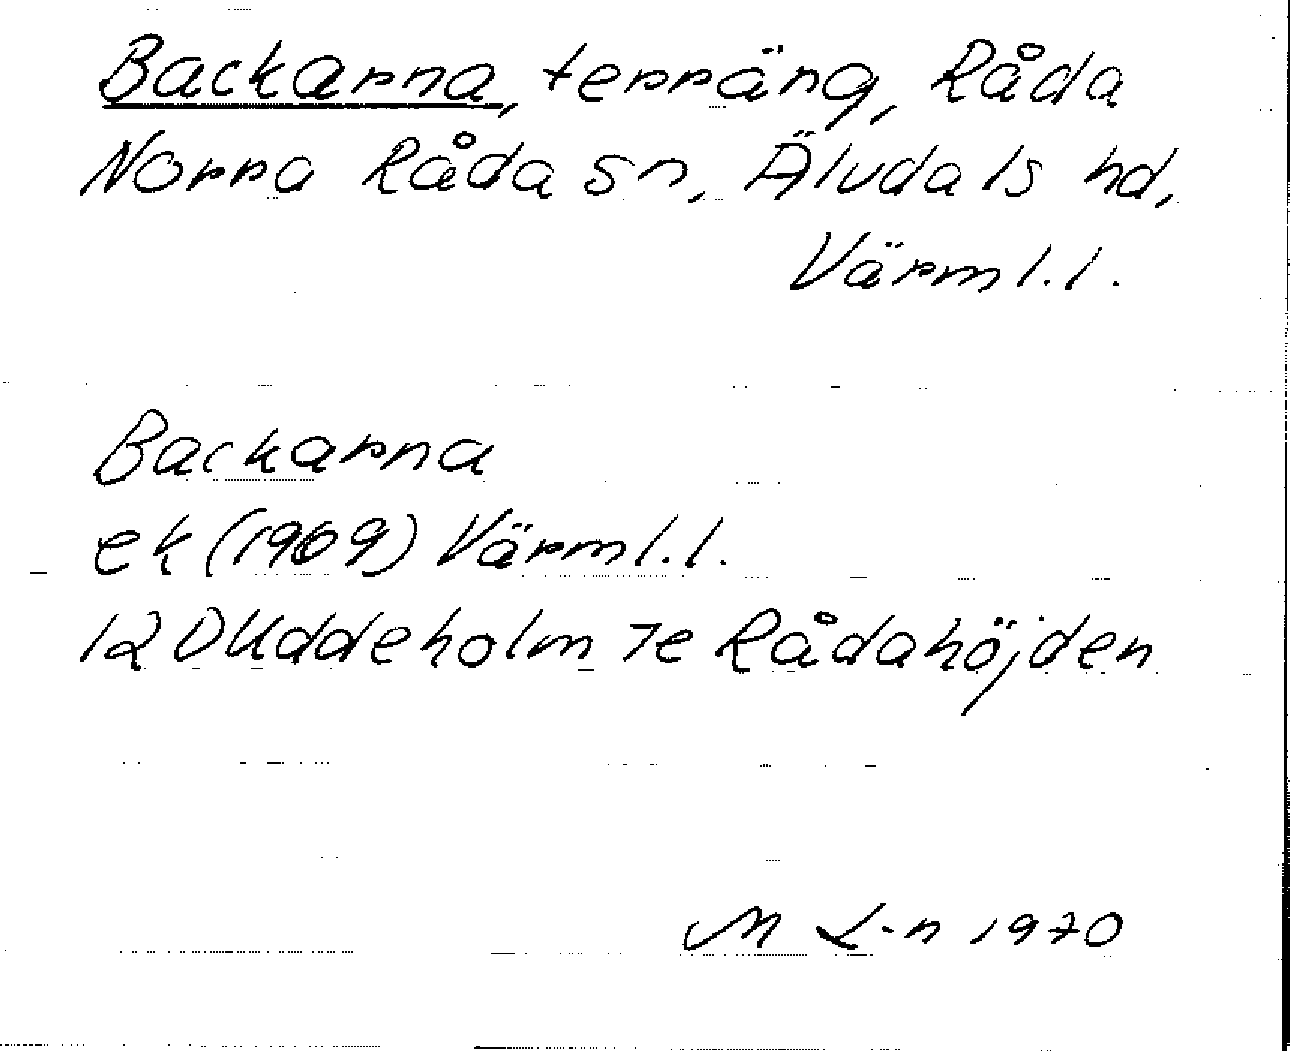 Backarna, terräng, Råda
Norra Råda sn, Älvdals hd,
Värml.l.
Backarna
ek (1969) Värml.l.
12D Uddeholm 7e Rådahöjden
M L-n 1970